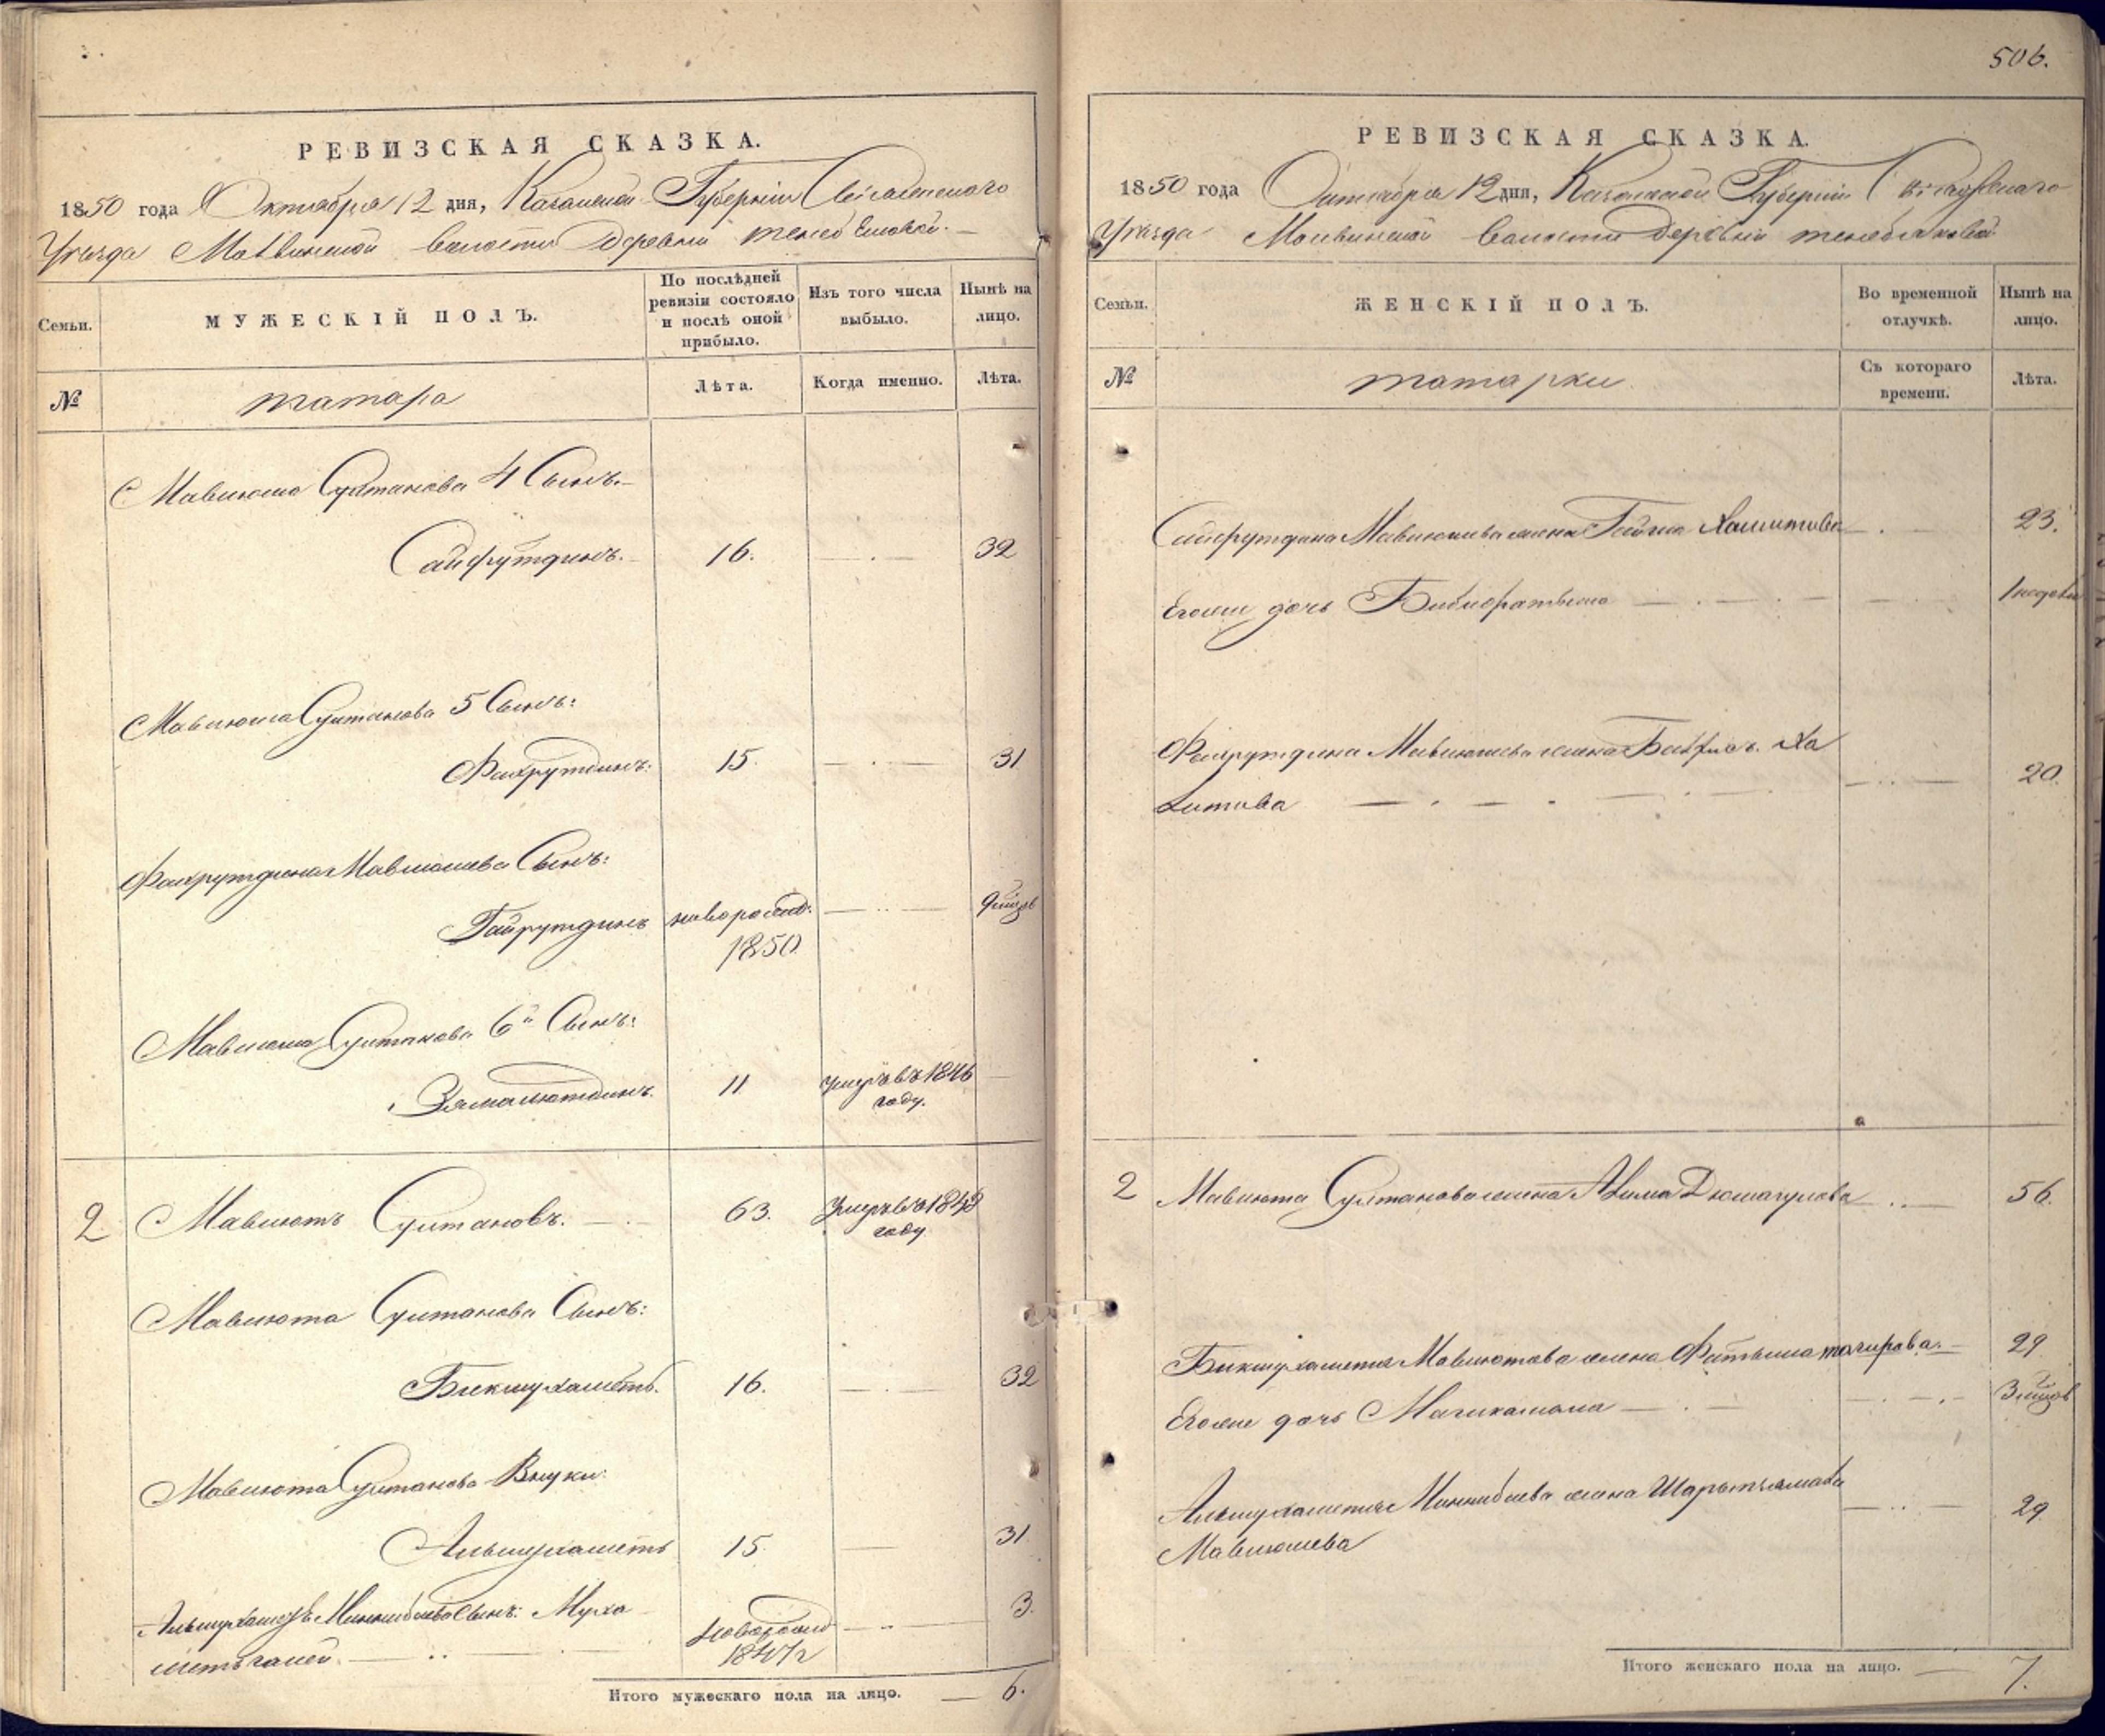 РЕВИЗСКАЯ СКАЗКА.
1850 года Октября 12 дня, Казанской Губерніи Свіяжскаго
Уѣзда волости Деревни
Семьи.
МУЖЕСКІЙ ПОЛЪ.
По послѣдней ревизіи состояло и послѣ оной прибыло.
Изъ того числа выбыло.
Нынѣ на лицо.
№
татара
Лѣта.
Когда именно.
Лѣта.
Мавлюша Султанова 4 Сынъ.
Сайфутдинъ. 16. 32
Мавлюша Султанова 5 Сынъ:
Фахрутдинъ: 15. 31
Фахрутдина Мавлюшева Сынъ:
Гайрутдинъ новорожд: 1850
Мавлюша Султанова 6й Сынъ:
11 умеръ въ 1846 году.
2 Мавлютъ Султановъ. 63. Умеръ въ году
Мавлюта Султанова Сынъ:
Бикмухаметъ. 16. 32
Мавлюта Султанова Внуки:
Альмухаметъ 15. 31
Миннибаева Сынъ: Муха 3.
метьгалей. новорожд 1847 г
Итого мужескаго пола на лицо. 6.
506.
РЕВИЗСКАЯ СКАЗКА.
1850 года Октября 12 дня, Казанской Губерніи Свіяжскаго
Уѣзда волости Деревни
Семьи.
ЖЕНСКІЙ ПОЛЪ.
Во временной отлучкѣ.
Нынѣ на лицо.
№
татарки
Съ котораго времени.
Лѣта.
Сайфутдина Мавлюшева жена Хамитова 23.
Егоже дочь 1 недѣли
Фахрутдина Мавлюшева жена Ха
литова 20.
2 Мавлюта Султанова жена 56.
Бикмухаметя Мавлютова жена Фатыма тагирова. 29
Егоже дочь
Альмухаметя Миннибаева жена
Мавлюшева 29
Итого женскаго пола на лицо. 7.